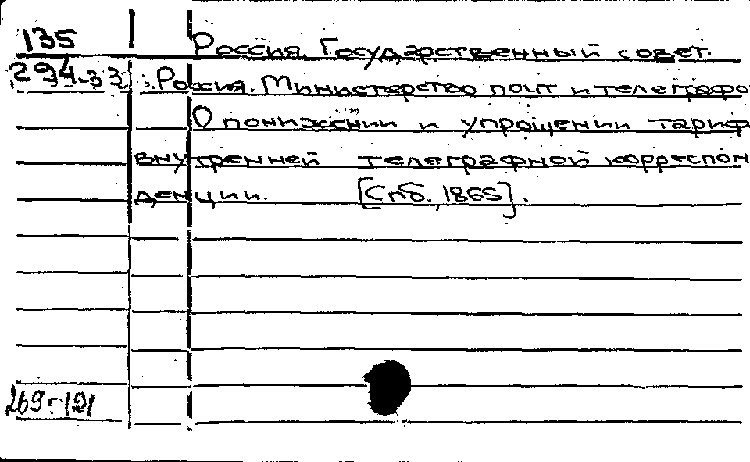 135
Россия. Государственный совет.
294-33
Россия. Министерство почт и телеграфо
О понижении и упрощении тариф
внутренней телеграфной корреспон
денции. [Спб., 1865].
269-121